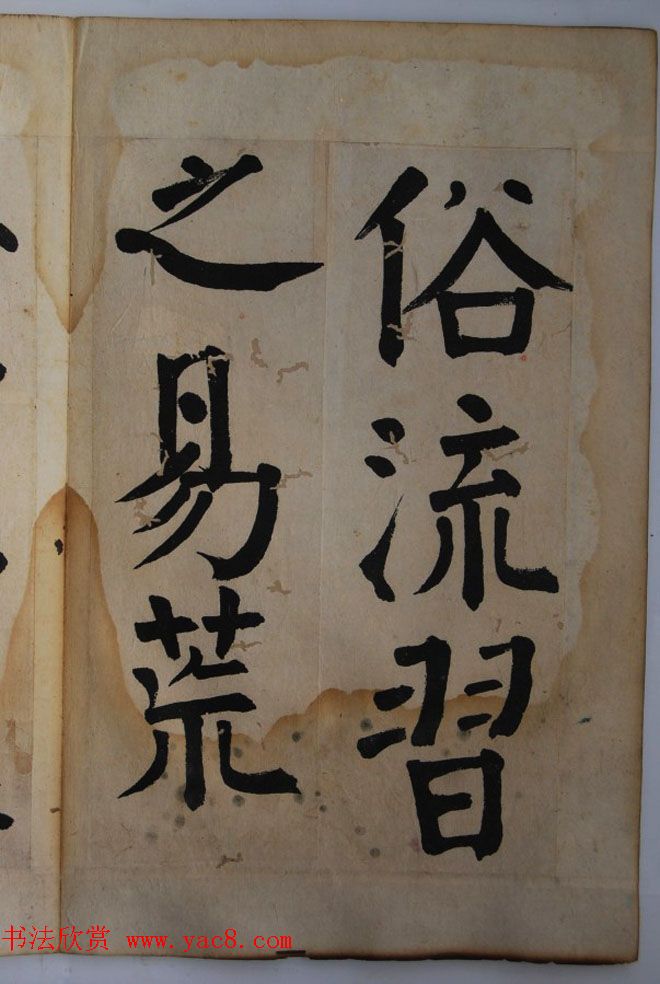 俗流習
之易荒
书法欣赏 www.yac8.com